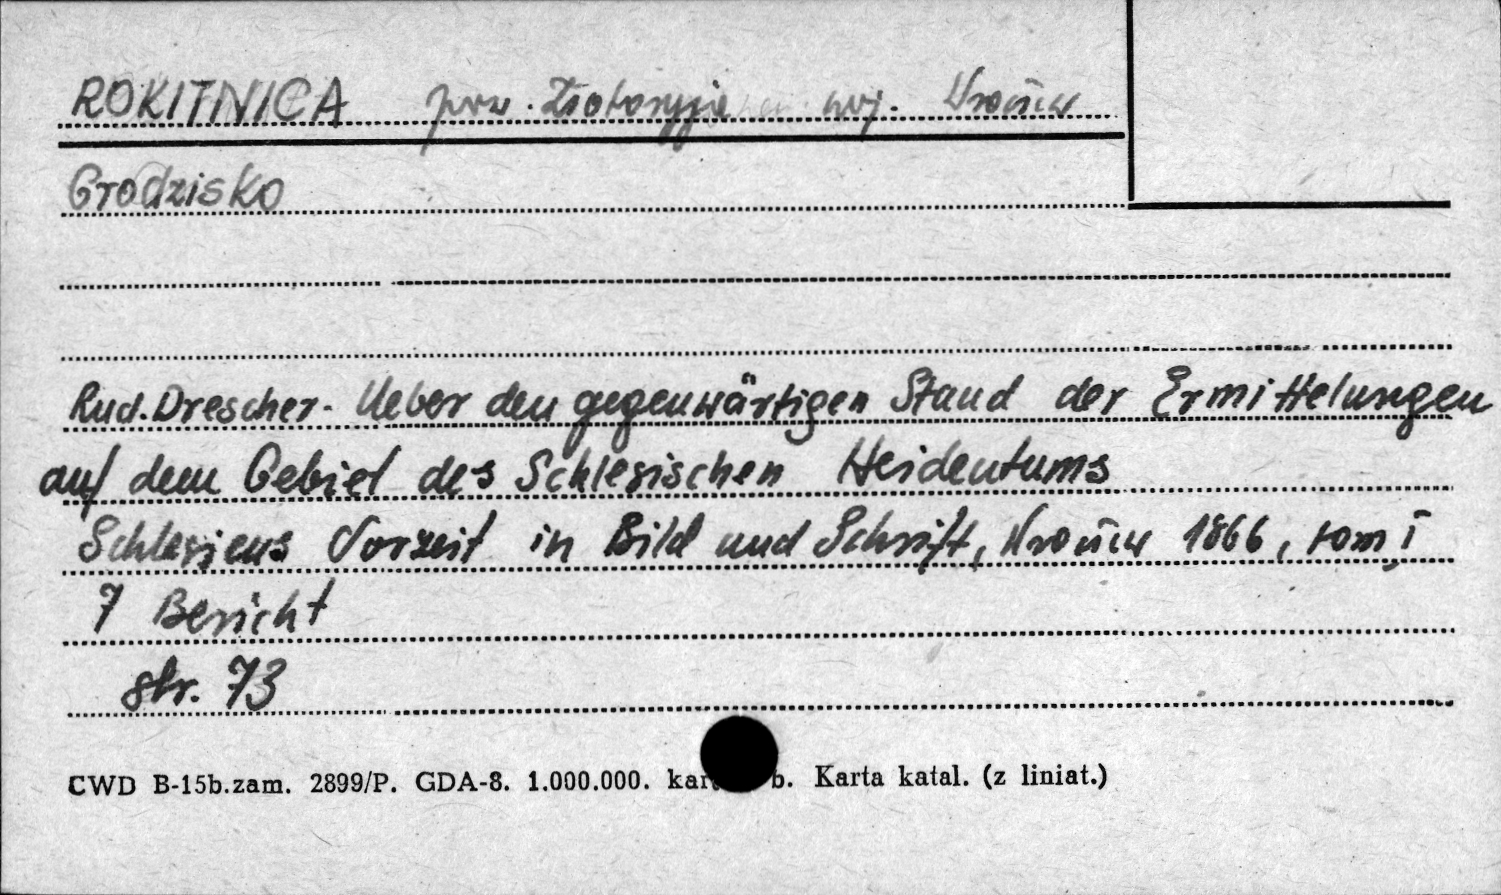 ROKITNICA pow. Złotoryja woj. Wrocław
Grodzisko
Rud. Drescher - Ueber den gegenwärtigen Stand der Ermittelungen
auf dem Gebiet des Schlesischen Heidentums
Schlesiens Vorzeit in Bild und Schrift, Wrocław 1866, tom I
7 Bericht
str. 73
CWD B-15b.zam. 2899/P. GDA-8. 1.000.000. b. Karta katal. (z liniat.)